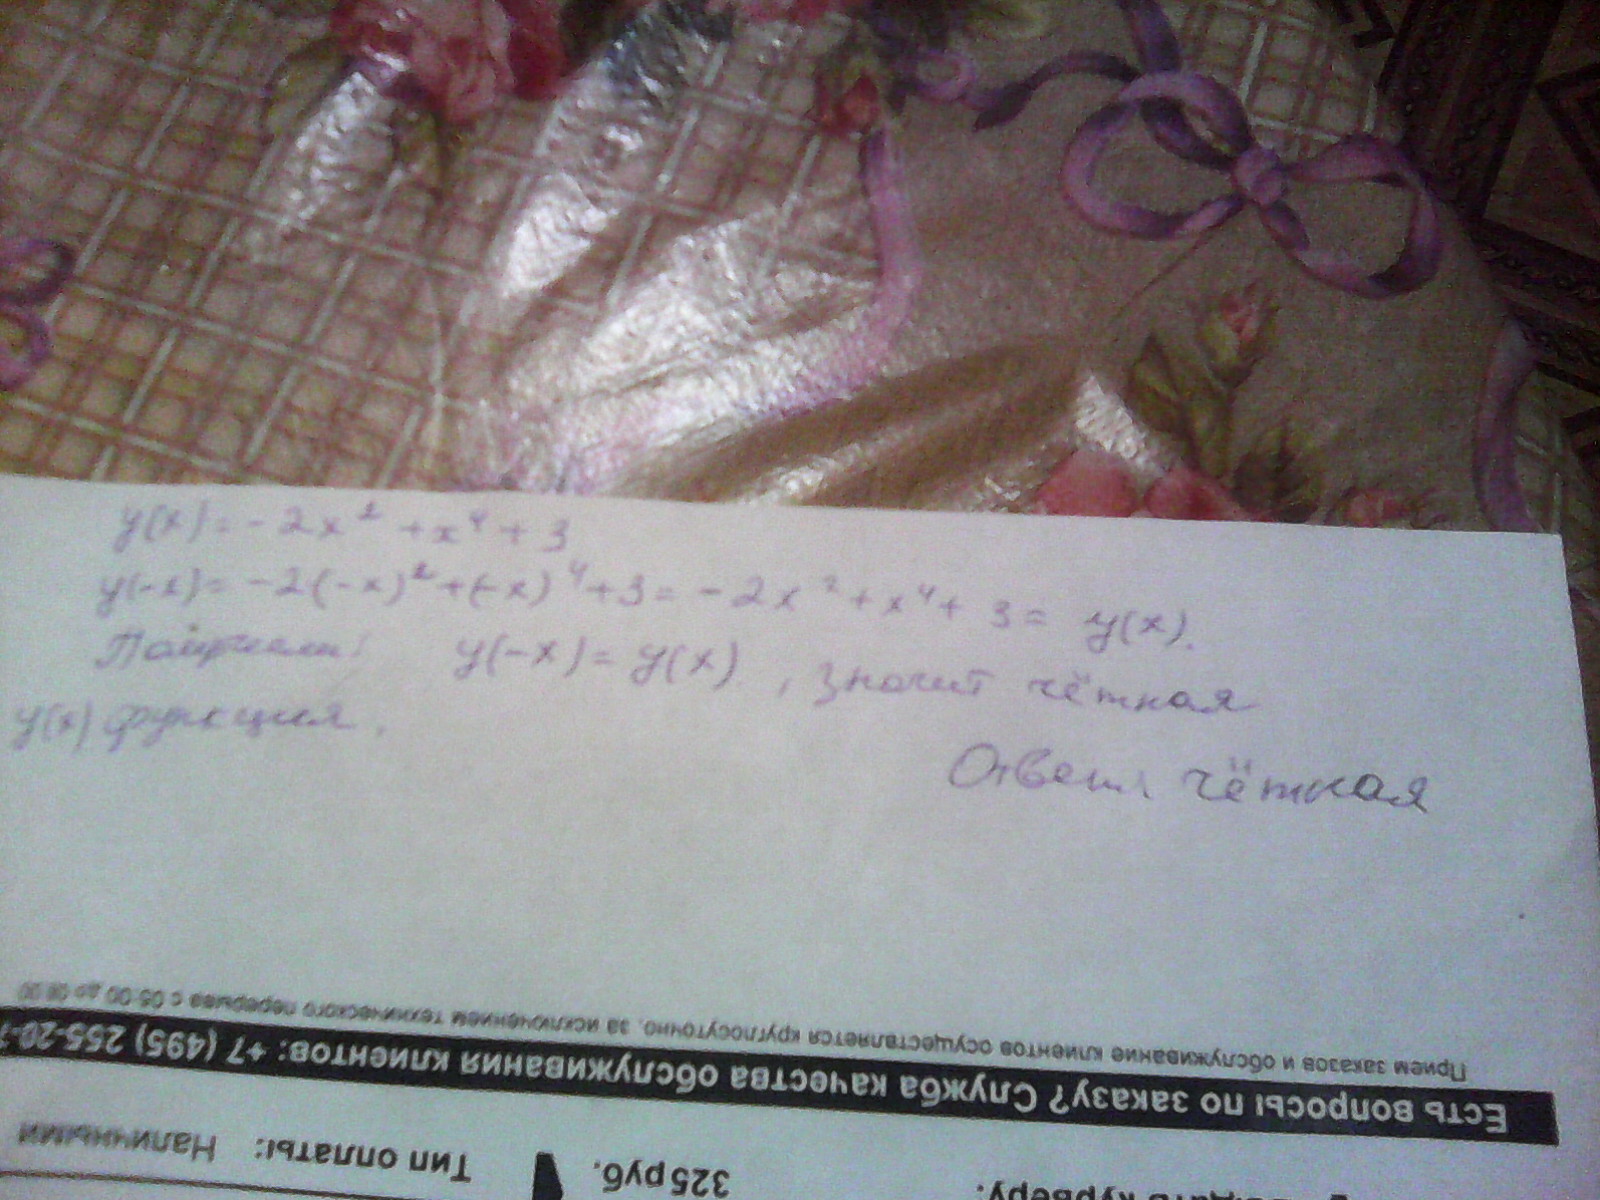 y(x) = -2x² + x⁴ + 3
y(-x) = -2(-x)² + (-x)⁴ + 3 = -2x² + x⁴ + 3 = y(x).
Получили: y(-x) = y(x), значит чётная
y(x) функция.
Ответ: чётная
Прием заказов и обслуживание клиентов осуществляется круглосуточно, за исключением технического перерыва с 05:00 до 06:00
Есть вопросы по заказу? Служба качества обслуживания клиентов: +7 (495) 255-20-
325 руб. Тип оплаты: Наличными
курьеру: